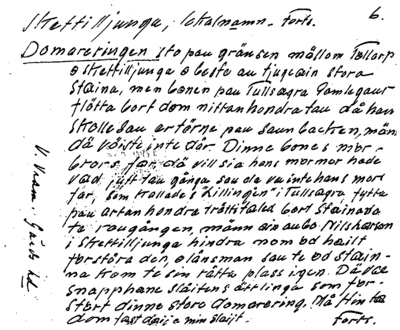 Skettilljunga, Ickalmann. Forts. 6.
Domareringen sto pau gränsen mällom Tollarp
o Skettilljunga o beste au tjugeain stora
staina, men bonen pau Tullsagra Gamlegaur
flötta bort dom nittanhondra tau då han
skolle au törne pau saun backen, män
dä voiste inte dår. Dinne bones mor-
brors far, då vill sia hans mormor hade
vad gift tau gånga sau de va inte hans mor
far, som kallades "Killingen" i Tullsagra fytta
pau artan hondra tråttitaled bort stainada
te raugången, männ ain aubo Nils
i Skettilljunga hindra nom od hailt
forstöra den, o länsman sau te od stain-
na kom te sin råtta plass igen. Dä va
snapphane slaitens ättlinga som for-
stört dinne stora domarering. Må Hin ta
dom fast
Forts.
V. Vram. Gärds hd